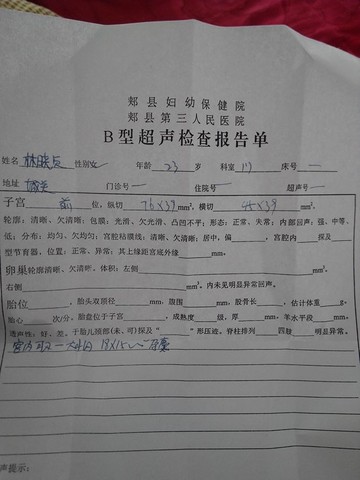 郏县妇幼保健院
郏县第三人民医院
B型超声检查报告单
姓名 性别 女 年龄 23 岁 科室 门 床号 一
地址 城关 门诊号 一 住院号 一 超声号 一
子宫 前 位,纵切 76×39 mm³,横切 45×39 mm³
轮廓:清晰、欠清晰;包膜:光滑、欠光滑、凸凹不平;形态:正常、失常;内部回声:强、中等、
低;分布:均匀、欠均匀;宫腔粘膜线:清晰、欠清晰;居中,偏 宫腔内 探及
型节育器,位置:正常、异常;其上缘距宫底外缘 mm。
卵巢轮廓清晰、欠清晰,体积:左侧 mm³,
右侧 mm³,内未见明显异常回声。
胎位 ,胎头双顶径 mm,腹围 mm,股骨长 mm,估计体重 g,
胎心 次/分,胎盘位于子宫 ,成熟度 级,厚 mm,羊水平段 mm,
透声性:好、差、于胎儿颈部(未、可)探及“ ”形压迹。脊柱排列 四肢 明显异常。
宫内可见一大小约 19×15
声提示: